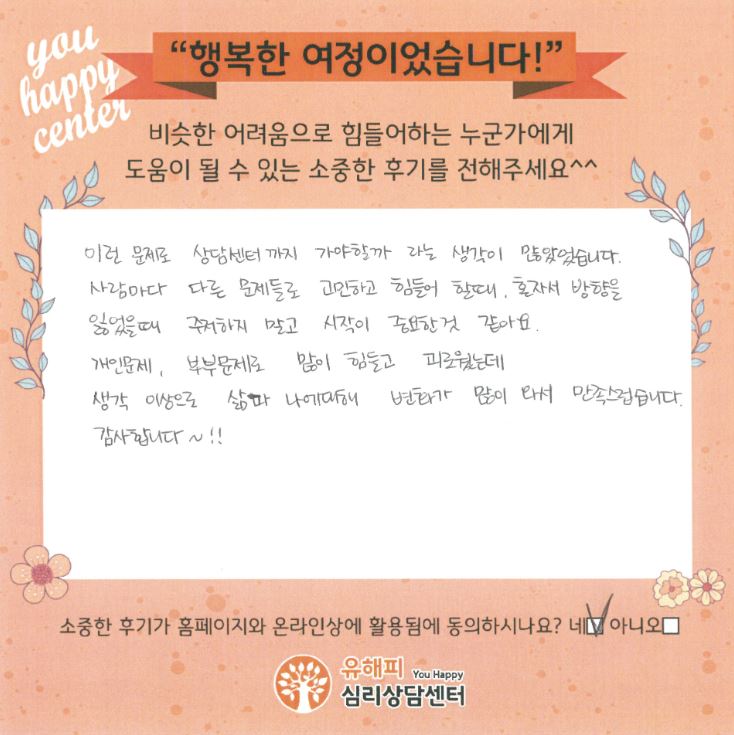 you
happy
center
“행복한 여정이었습니다!”
비슷한 어려움으로 힘들어하는 누군가에게
도움이 될 수 있는 소중한 후기를 전해주세요^^
이런 문제로 상담센터까지 가야할까 라는 생각이 많았었습니다.
사람마다 다른 문제들로 고민하고 힘들어 할때, 혼자서 방향을
잃었을때 주저하지 말고 시작이 중요한것 같아요.
개인문제, 부부문제로 많이 힘들고 괴로웠는데
생각 이상으로 삶과 나에대해 변화가 많이 와서 만족스럽습니다.
감사합니다~!!
소중한 후기가 홈페이지와 온라인상에 활용됨에 동의하시나요? 네☑ 아니오☐
유해피 You Happy
심리상담센터